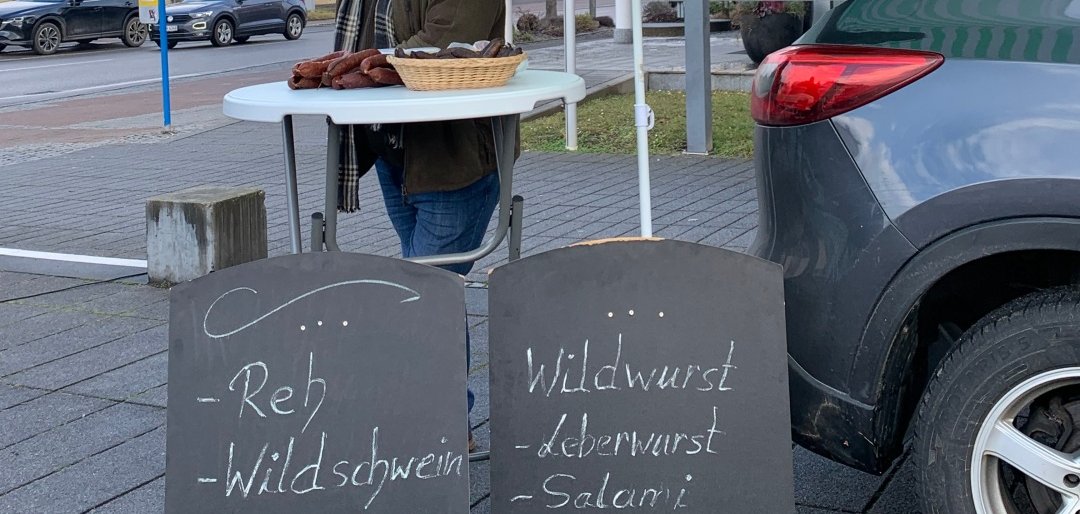 ...
- Reh
- Wildschwein
...
Wildwurst
- Leberwurst
- Salami